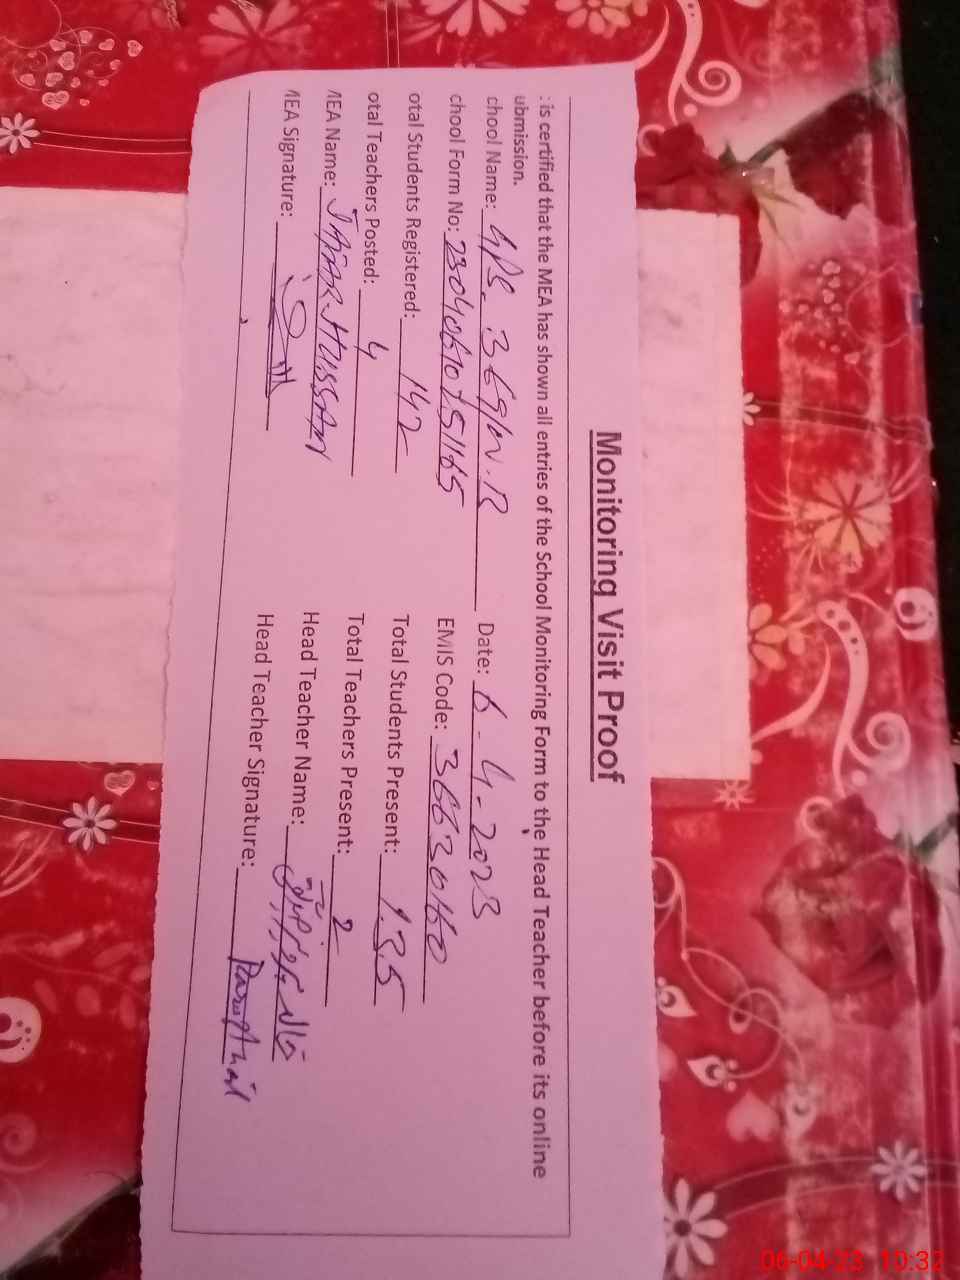 Monitoring Visit Proof
: is certified that the MEA has shown all entries of the School Monitoring Form to the Head Teacher before its online
ubmission.
chool Name: GPS. 36 Date: 6-4-2023
chool Form No: EMIS Code: 36630160
otal Students Registered: 142 Total Students Present: 135
otal Teachers Posted: 4 Total Teachers Present: 2
MEA Name: HUSSAIN Head Teacher Name:
MEA Signature: Head Teacher Signature:
06-04-23 10:32